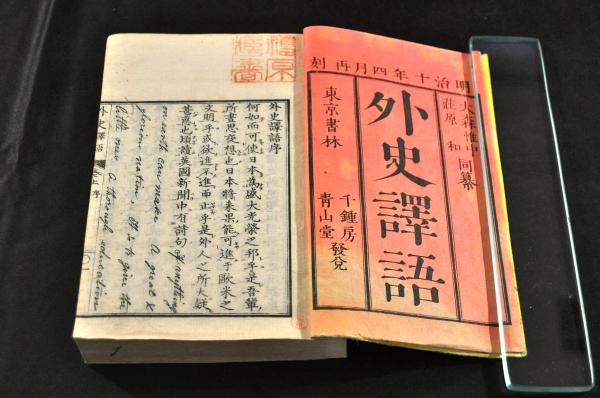 明治十年四月再刻
大森惟中
荘原 和 同纂
外史譯語
東京書林
千鍾房
青山堂
發兌
外史譯語序
何如而可使日本為盛大光榮之邦乎是吾輩
所晝思夜想也日本將来果能可進于歐米之
文明乎或欲進不進而止乎是外人之所大疑
甚惑也頃讀英國新聞中有詩句 If anything
on earth can make a great &
glorious nation, it is to give the
little ones a thorough education
外史譯語 卷上 序